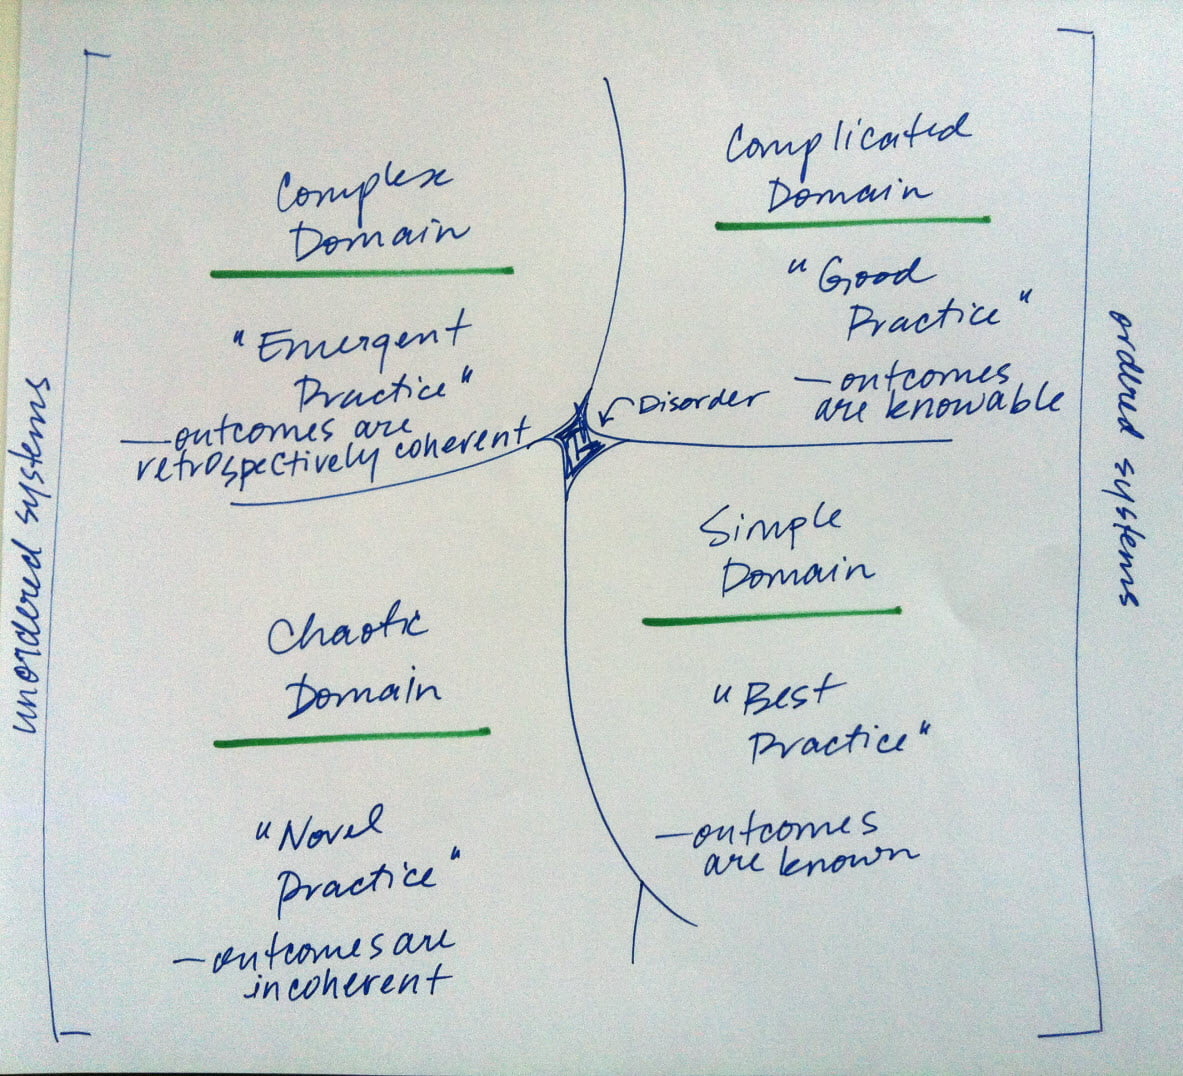 unordered systems
Complex
Domain
"Emergent
Practice"
—outcomes are
retrospectively coherent
Complicated
Domain
"Good
Practice"
—outcomes
are knowable
Disorder
Chaotic
Domain
"Novel
Practice"
—outcomes are
incoherent
Simple
Domain
"Best
Practice"
—outcomes
are known
ordered systems